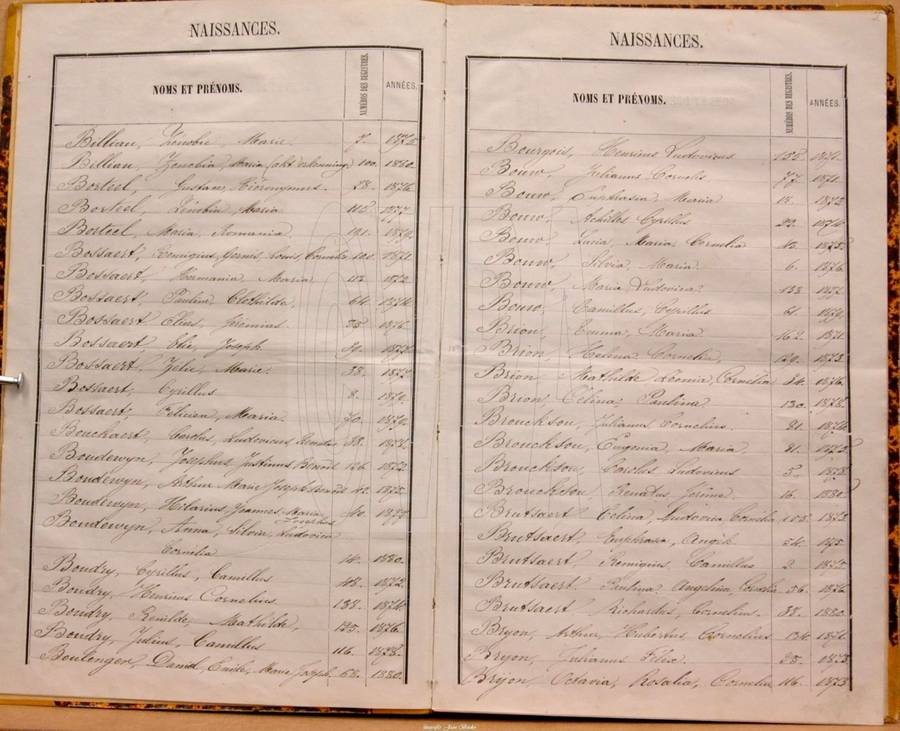 NAISSANCES.
NOMS ET PRÉNOMS. NUMÉROS DES REGISTRES. ANNÉES.
Billiau, Zénobie, Marie. 7.
Billiau, Zenobia, Maria 100. 1880.
Borteel, Gustaaf, Hieronymus. 28. 1876.
Borteel, Zénobia, Maria 1877.
Borteel, Maria, Romania. 191. 1879.
Bossaert, Remigius, Louis, 100. 1871.
Bossaert, Germania, Maria 1872.
Bossaert, Paulina Clothilde. 64. 1874.
Bossaert Elias, Jérémias. 1876.
Bossaert, Elie, Joseph. 1877.
Bossaert, Zelie, Marie. 38. 1877.
Bossaert, Cyrillus 8. 1879.
Bossaert, Maria. 70. 1879.
Bouckaert, Carolus, Ludovicus 38. 1871.
Boudewyn, Josephus Justinus Benoit 126. 1872.
Boudewyn, Arthur Marie Joseph 40. 1875.
Boudewyn, Hilarius, Joannes, Maria 40. 1877.
Boudewyn, Anna, Silvia, Ludovica
Cornilia 14. 1880.
Boudry, Cyrillus, Camillus 48. 1872.
Boudry, Henricus Cornelius. 138. 1874.
Boudry, Renilde, Mathilde, 125. 1876.
Boudry, Julius, Camillus 116. 1878.
Boulengen, Daniel, Emile, Marie Joseph. 52. 1880.
NAISSANCES.
NOMS ET PRÉNOMS. NUMÉROS DES REGISTRES. ANNÉES.
Bourgois, Henricus Ludovicus 1871.
Bouw, Julianus Cornelis 77. 1871.
Bouw, Euphrasia Maria 18. 1873.
Bouw, Achilles Cyrillus 22. 1874.
Bouw, Lucia, Maria Cornelia 42. 1875.
Bouw, Silvia, Maria. 6. 1876.
Bouw, Maria Ludovica 133.
Bouw, Camillus, Cyrillus 61. 1879.
Brion, Emma, Maria 162. 1871.
Brion, Helena Cornelia 120. 1873.
Brion Mathilde Leonia, Cornelia 84. 1876.
Brion, Célina, Paulina 130. 1878.
Brouckson, Julianus Cornelius. 81. 1874.
Brouckson, Eugenia, Maria 81.
Brouckson, Carolus Ludovicus 5. 1878.
Brouckson Renatus, Jérôme. 16. 1880.
Brutsaert Célina, Ludovica, Cornelia 105. 1873.
Brutsaert. Euphrasia, Angèle 54. 1875.
Brutsaert. Remigius, Camillus 2.
Brutsaert. Paulina, Angelina, Cornelia 56. 1876.
Brutsaert Richardus, Cornelius. 88. 1880.
Bryon, Arthur, Hubertus, Cornelius 134. 1871.
Bryon, Julianus Félix. 1873.
Bryon, Octavia, Rosalia, Cornelia 116. 1873